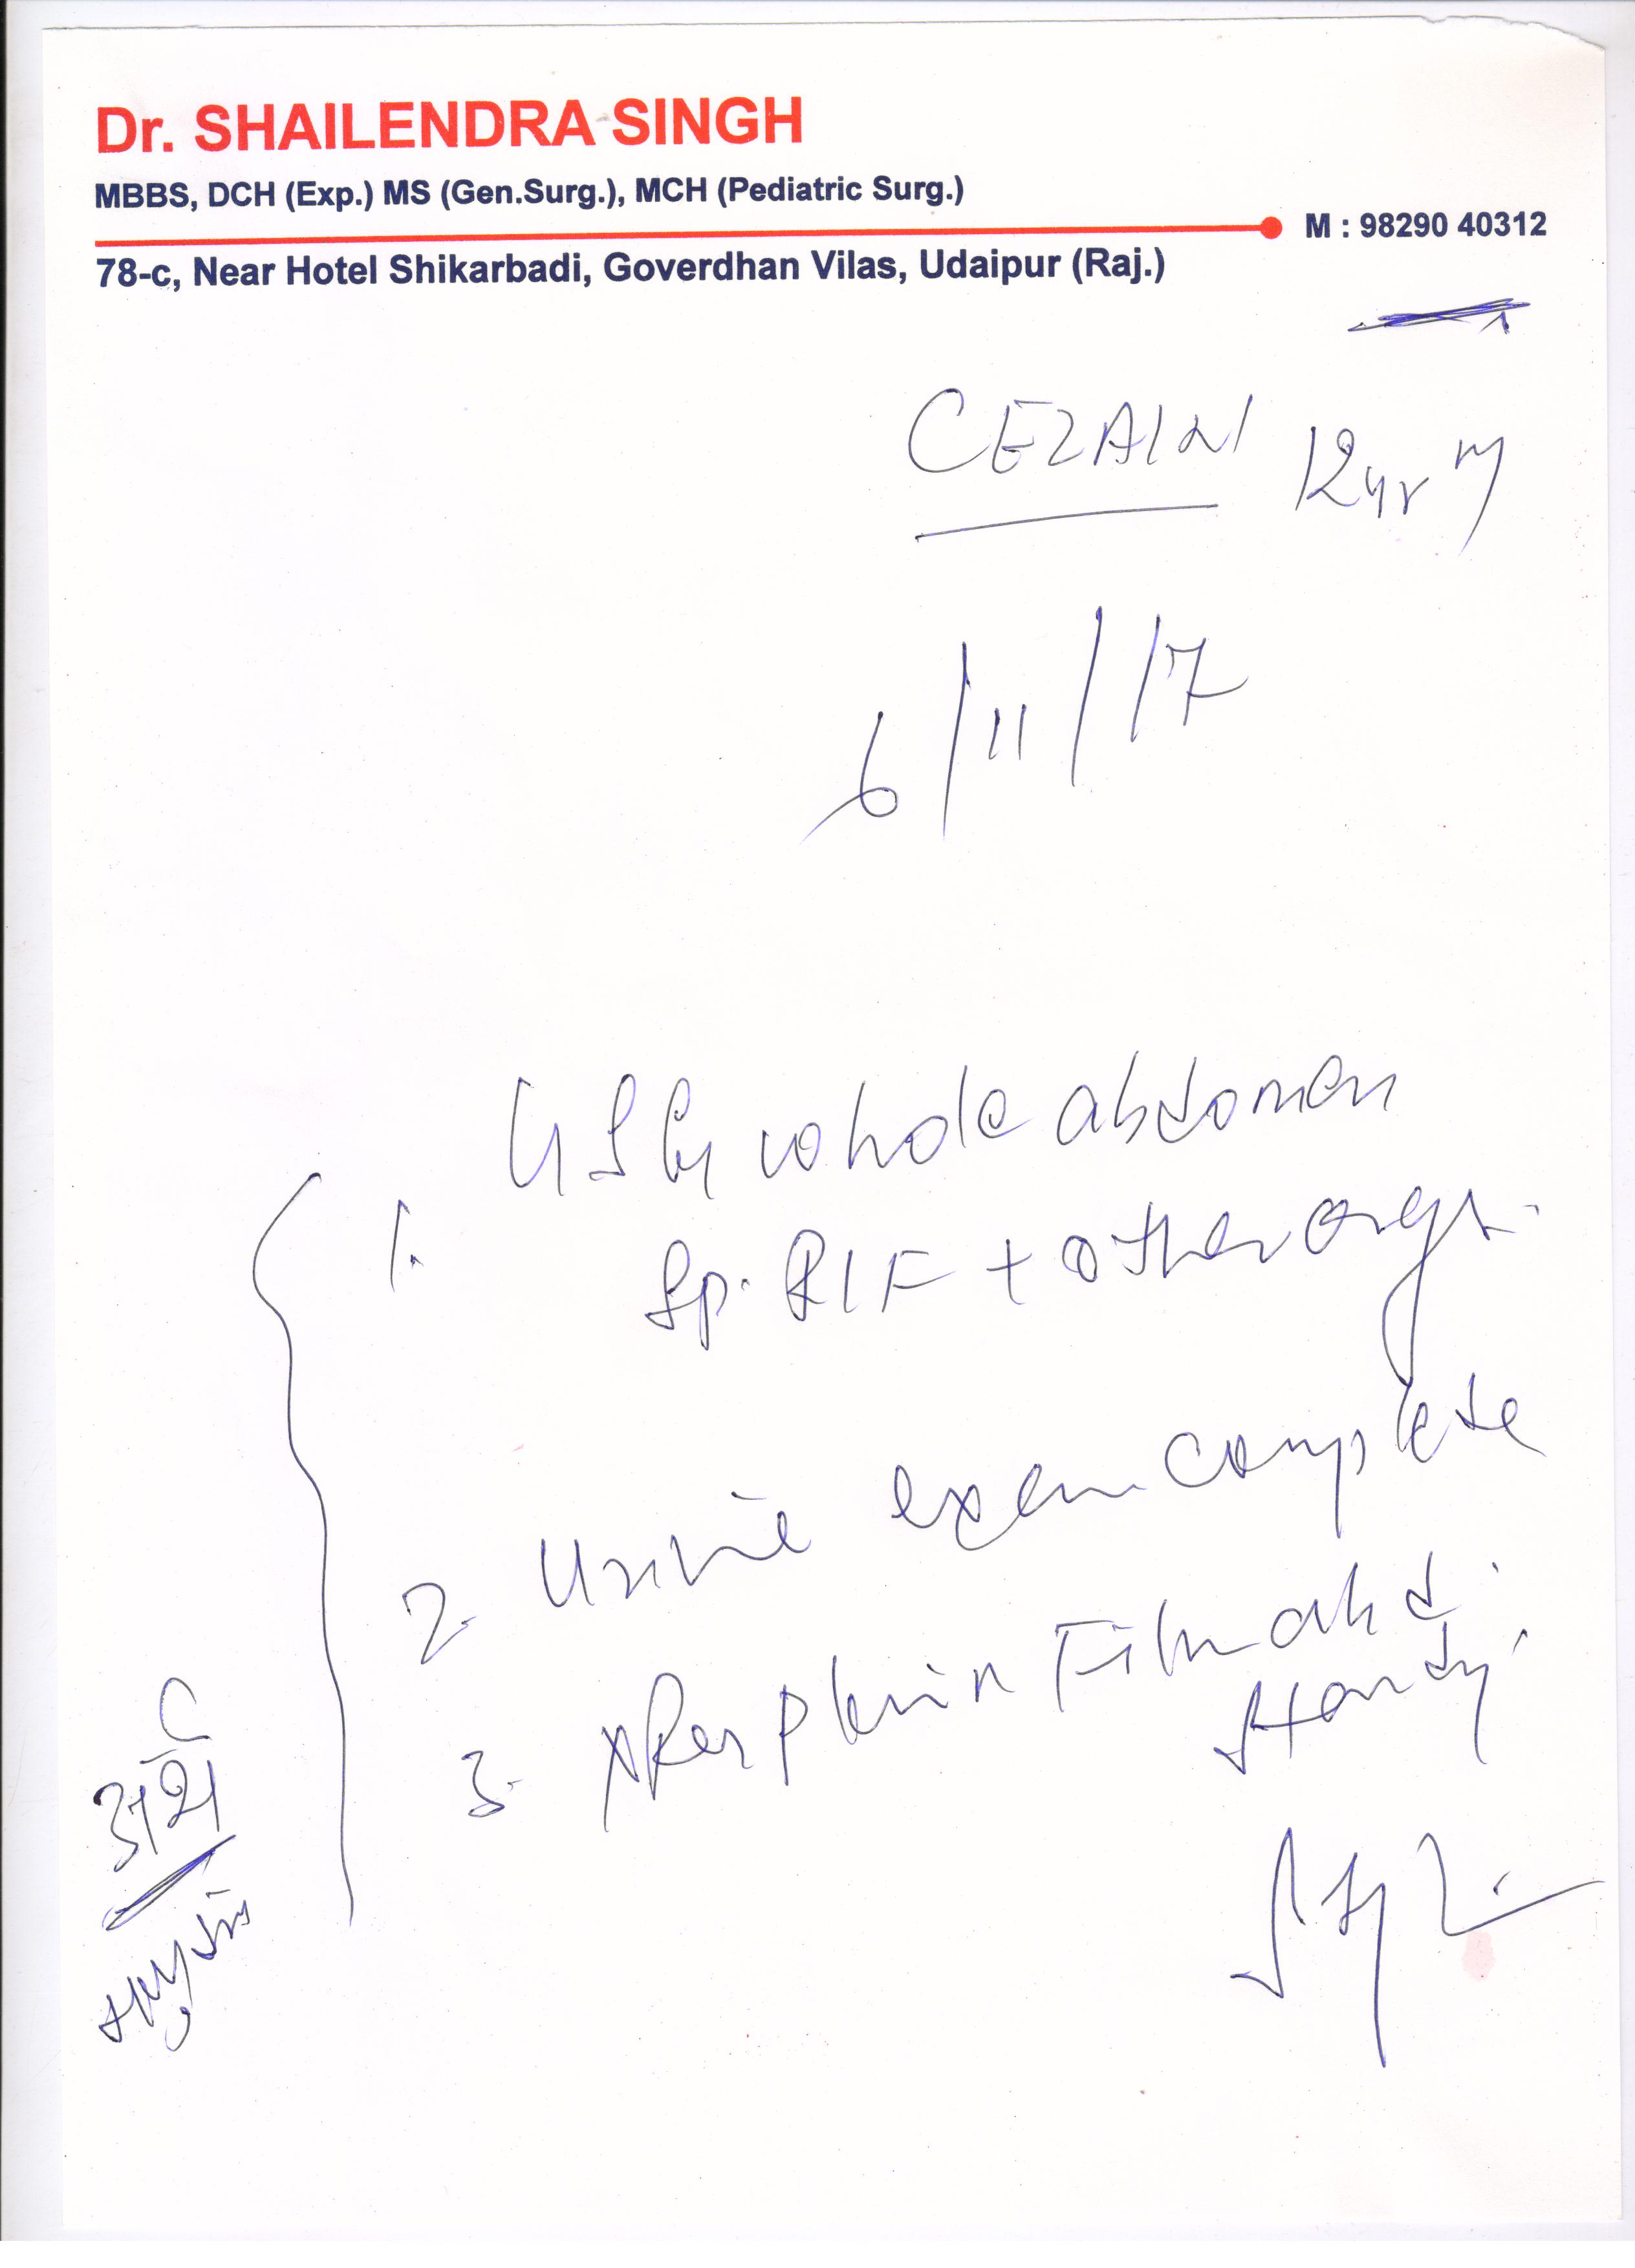 Dr. SHAILENDRA SINGH
MBBS, DCH (Exp.) MS (Gen.Surg.), MCH (Pediatric Surg.)
M : 98290 40312
78-c, Near Hotel Shikarbadi, Goverdhan Vilas, Udaipur (Raj.)
CEZAIN 12yr M
6/11/17
1. USG whole abdomen
Sp. RIF + other orgn.
2. Urine exam complete
3. XRay plain Film abd.